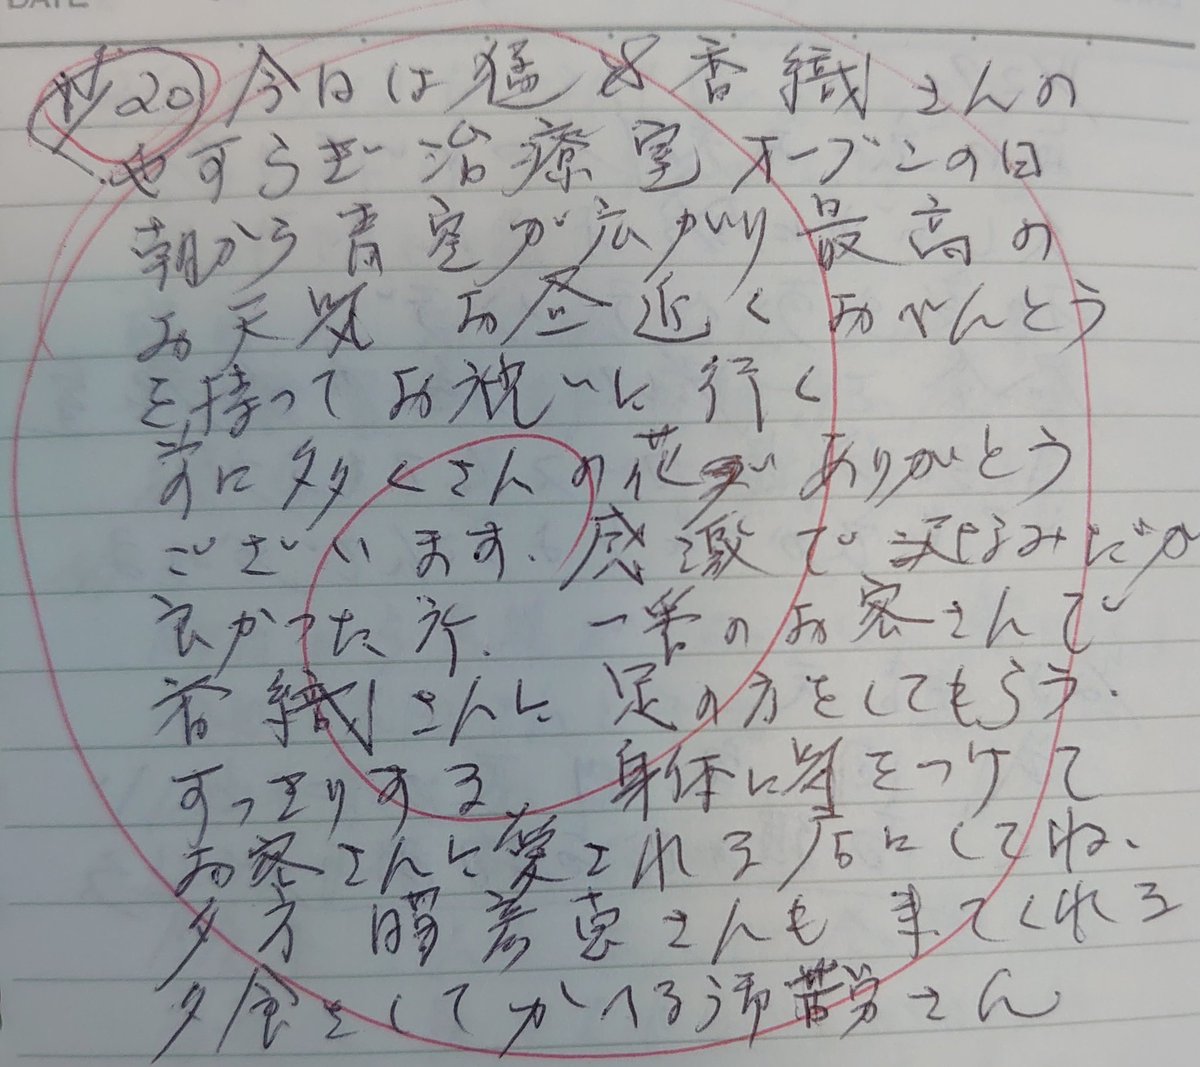 DATE
20 今日は猛と香織さんの
やすらぎ治療室オープンの日
朝から青空が広がり最高の
お天気 お昼近くおべんとう
を持ってお祝いに行く
前に多くさんの花が ありがとう
ございます、感激で なみだが
良かった所、一番のお客さんで
香織さんに足の方をしてもらう.
すっきりする 身体に気をつけて
お客さんに愛される店にしてね、
夕方 恵さんも来てくれる
夕食をしてかへる御苦労さん